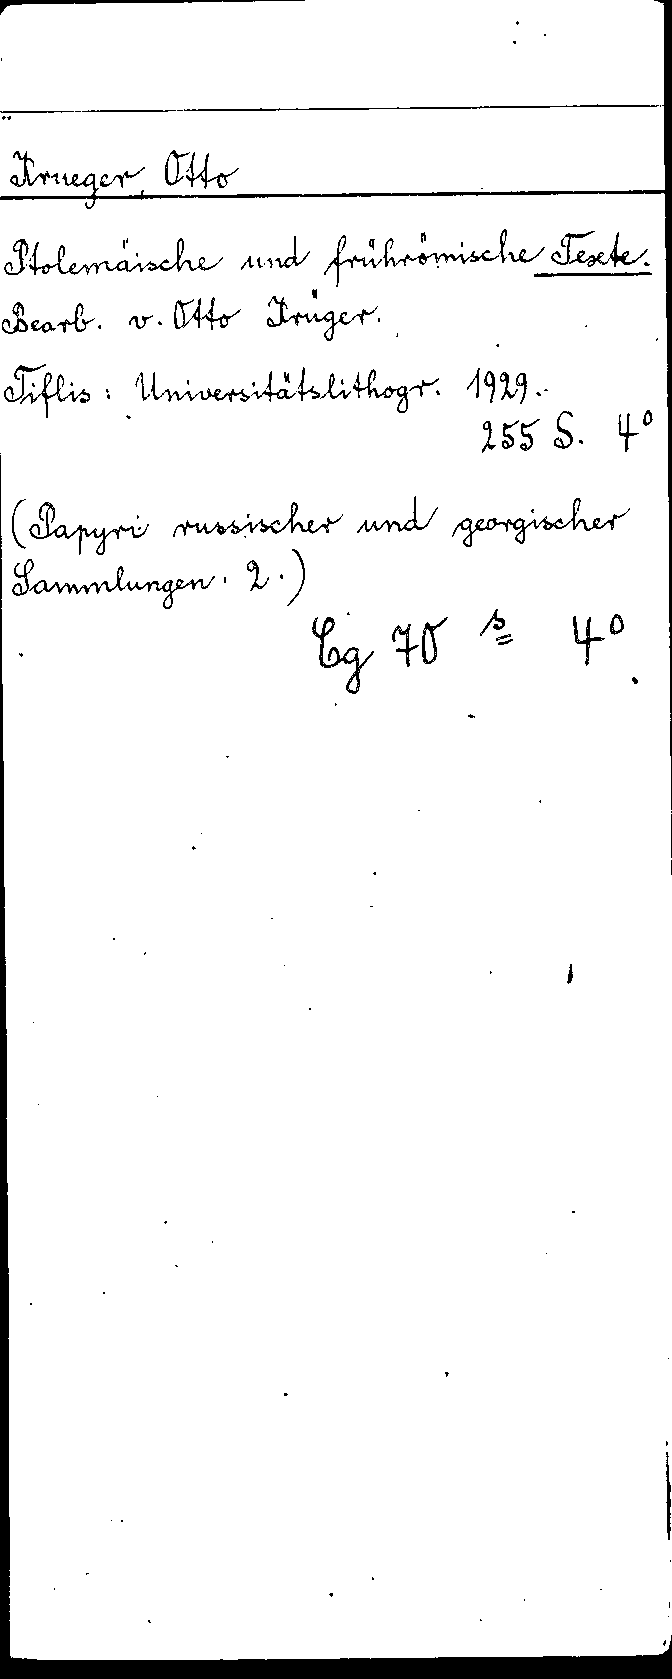 Krueger, Otto
Ptolemäische und frührömische Texte.
Bearb. v. Otto Krüger.
Tiflis: Universitätslithogr. 1929.
255 S. 4°
(Papyri russischer und georgischer
Sammlungen. 2.)
Cg 70 s 4°